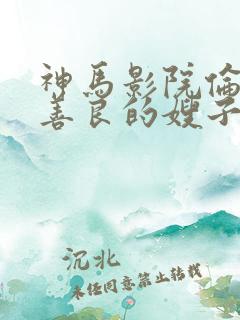 神馬影院倫
善良的嫂子
沉北
未经同意禁止转载